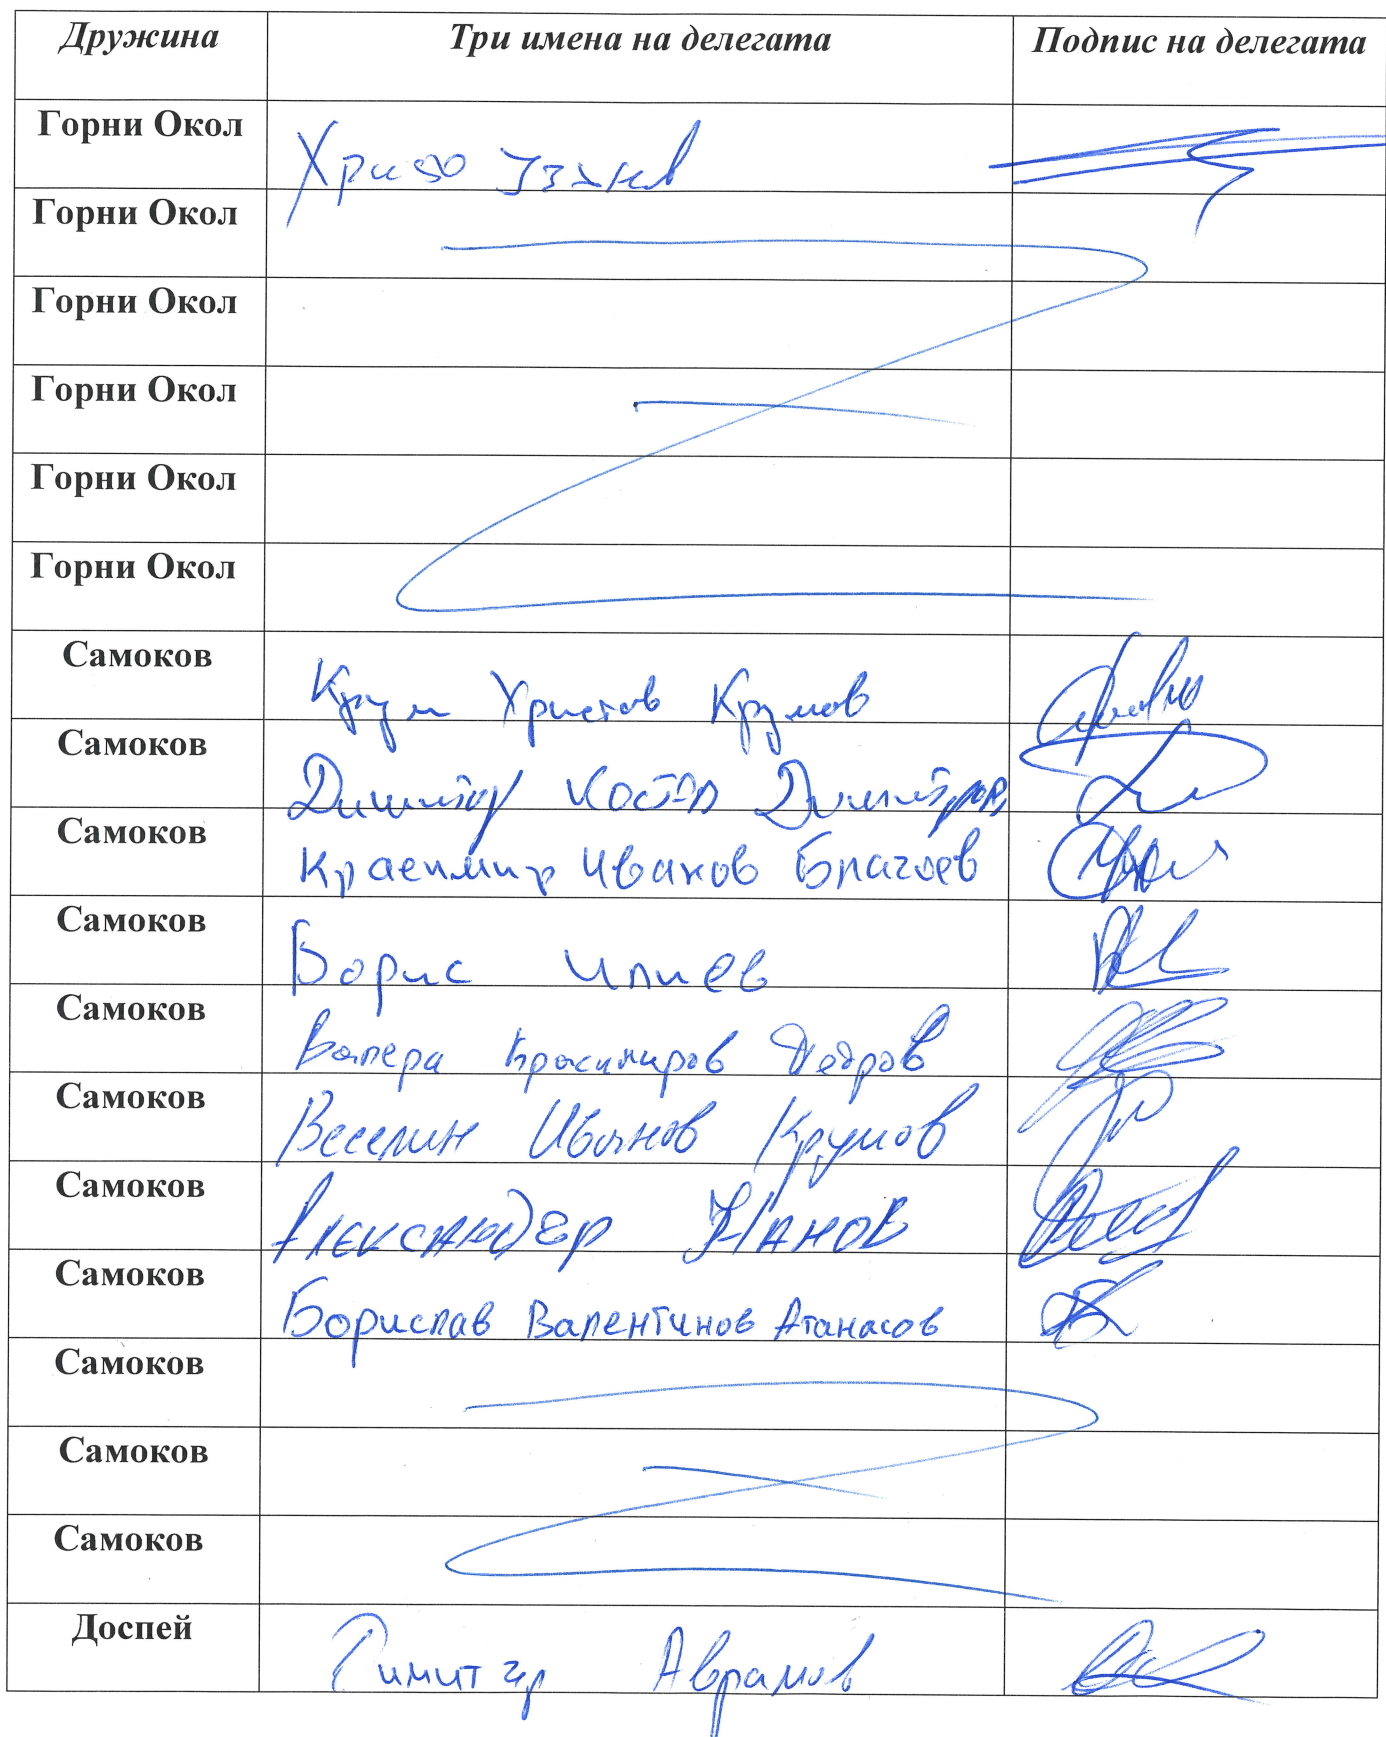 Дружина Три имена на делегата Подпис на делегата
Горни Окол Христо
Горни Окол
Горни Окол
Горни Окол
Горни Окол
Горни Окол
Самоков Крум Христов Крумов
Самоков Димитър Костов Димитров
Самоков Красимир Иванов Благоев
Самоков Борис Илиев
Самоков Валери Красимиров Педров
Самоков Веселин Иванов Крумов
Самоков Александър Нанов
Самоков Борислав Валентинов Атанасов
Самоков
Самоков
Самоков
Доспей Димитър Аврамов